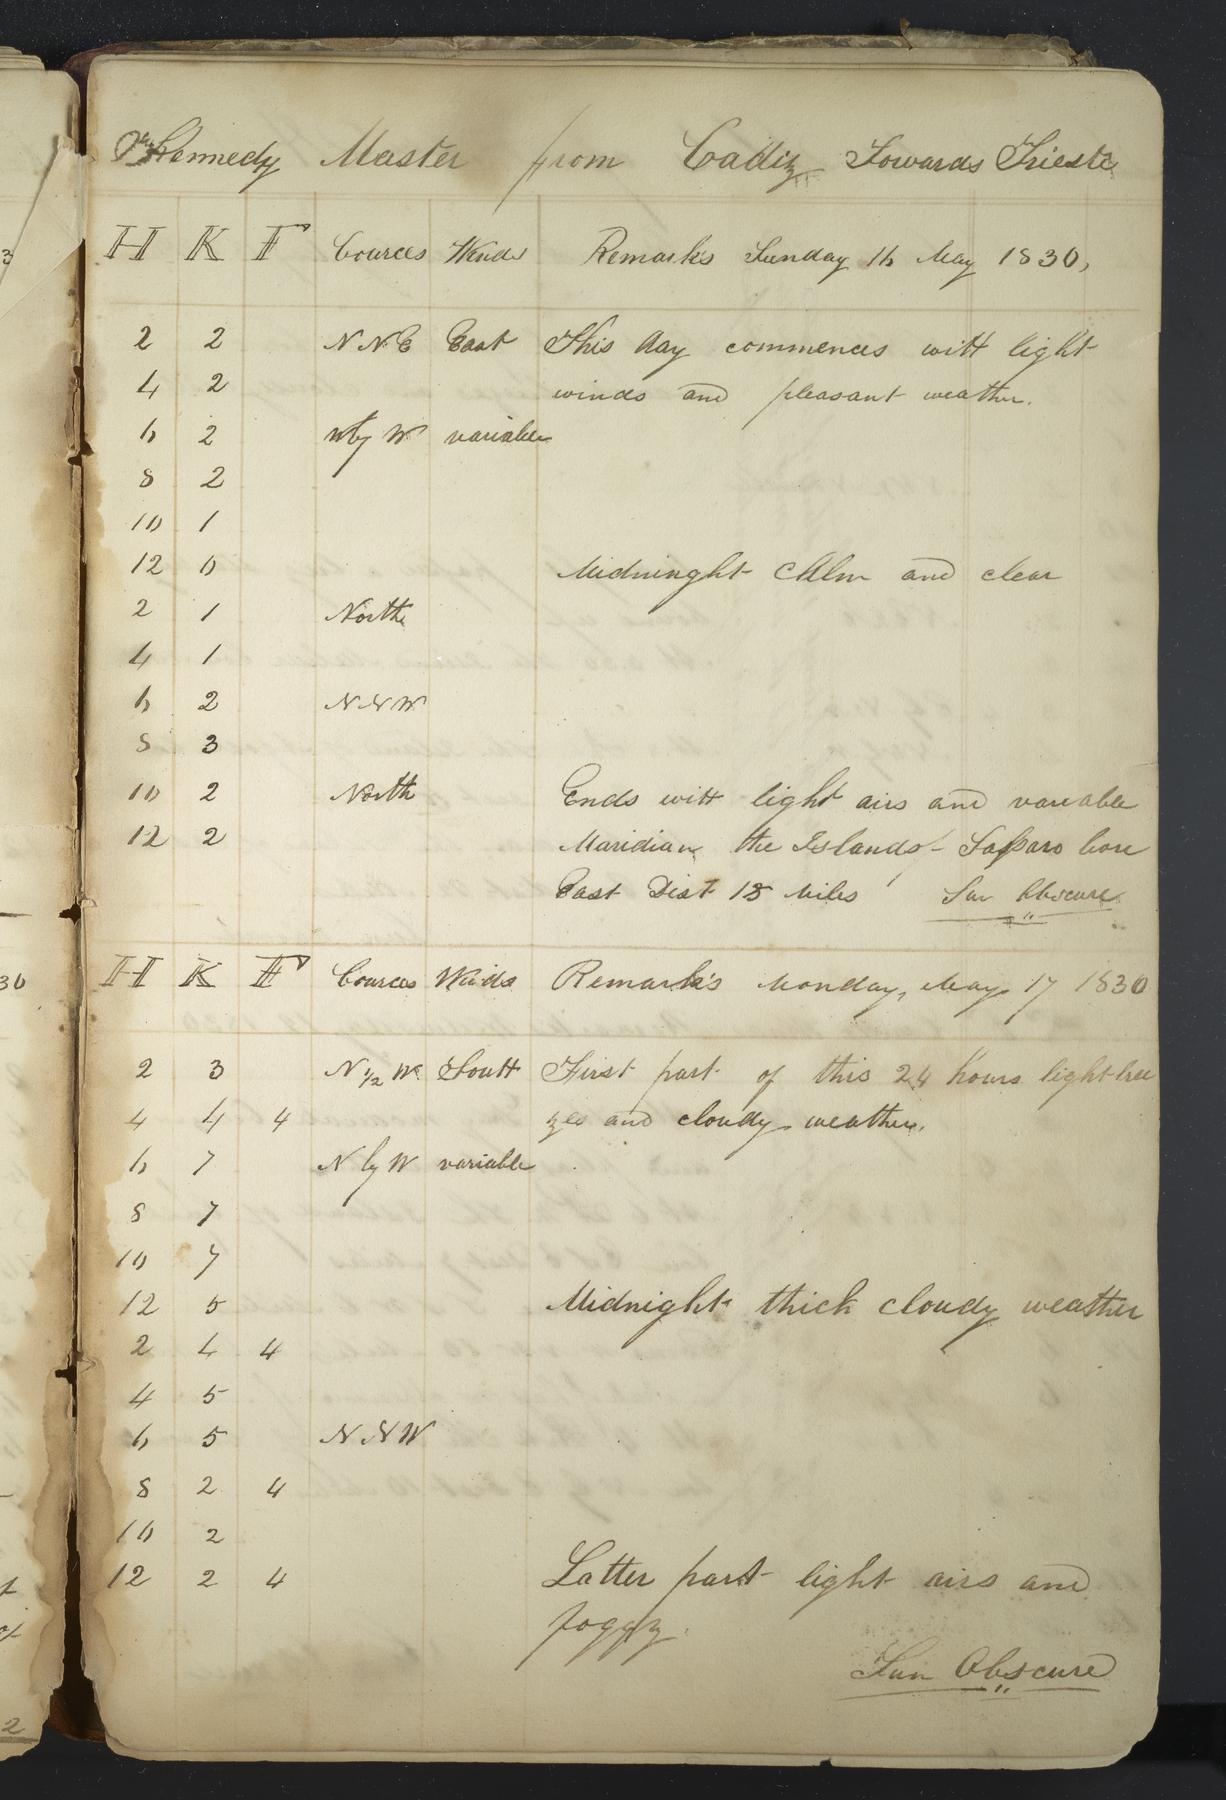 Kennedy Master from Cadiz Towards Trieste
H K F Cources Winds Remarks Sunday 16 May 1830,
2 2 N N E East This day commences witt light
4 2 winds and pleasant weather.
6 2 Nby W variable
8 2
10 1
12 0 Midninght Calm and clear
2 1 North
4 1
6 2 N N W
8 3
10 2 North Ends witt light airs and variable
12 2 Maridian the Islands bore
East Dist 18 Miles Sun Obscure
H K F Cources Winds Remark's Monday, May 17 1830
2 3 N 1/2 W Soutt First part of this 24 hours light bree
4 4 4 zes and cloudy weather.
6 7 N by W variable
8 7
10 7
12 5 Midnight thick cloudy weather
2 4 4
4 5
6 5 N N W
8 2 4
10 2
12 2 4 Latter part light airs and
foggy.
Sun Obscure
30
2